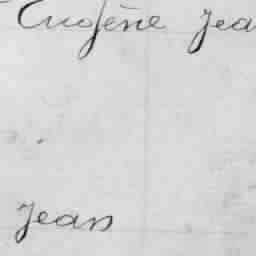 Eugène Jea
Jean